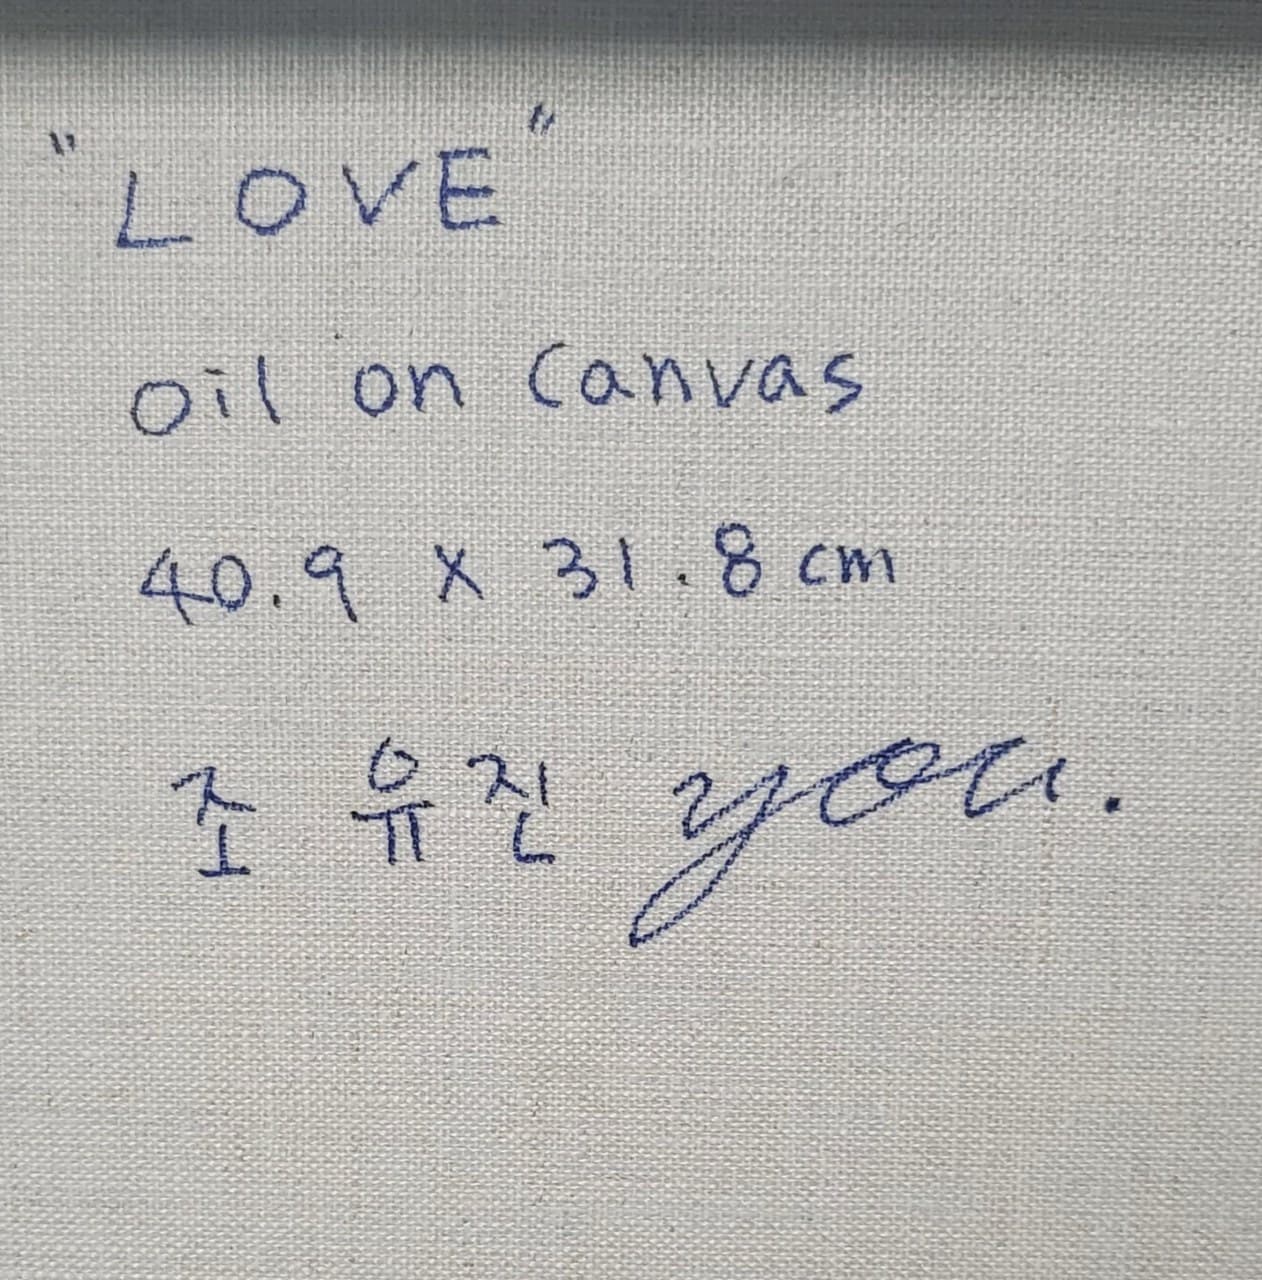 "LOVE"
oil on canvas
40.9 x 31.8 cm
조유진 you.